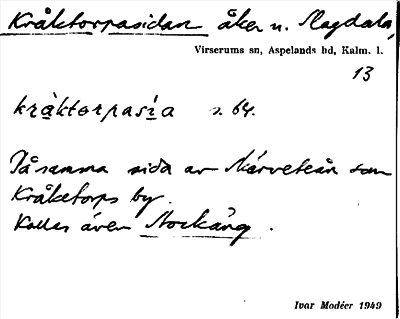 Kråktorpasidan åker u. Magdala,
Virserums sn, Aspelands hd, Kalm. l.
13
kråktorpasia s. 64.
På samma sida av Närveteån som
Kråketorps by.
Kallas även Stockäng.
Ivar Modéer 1949